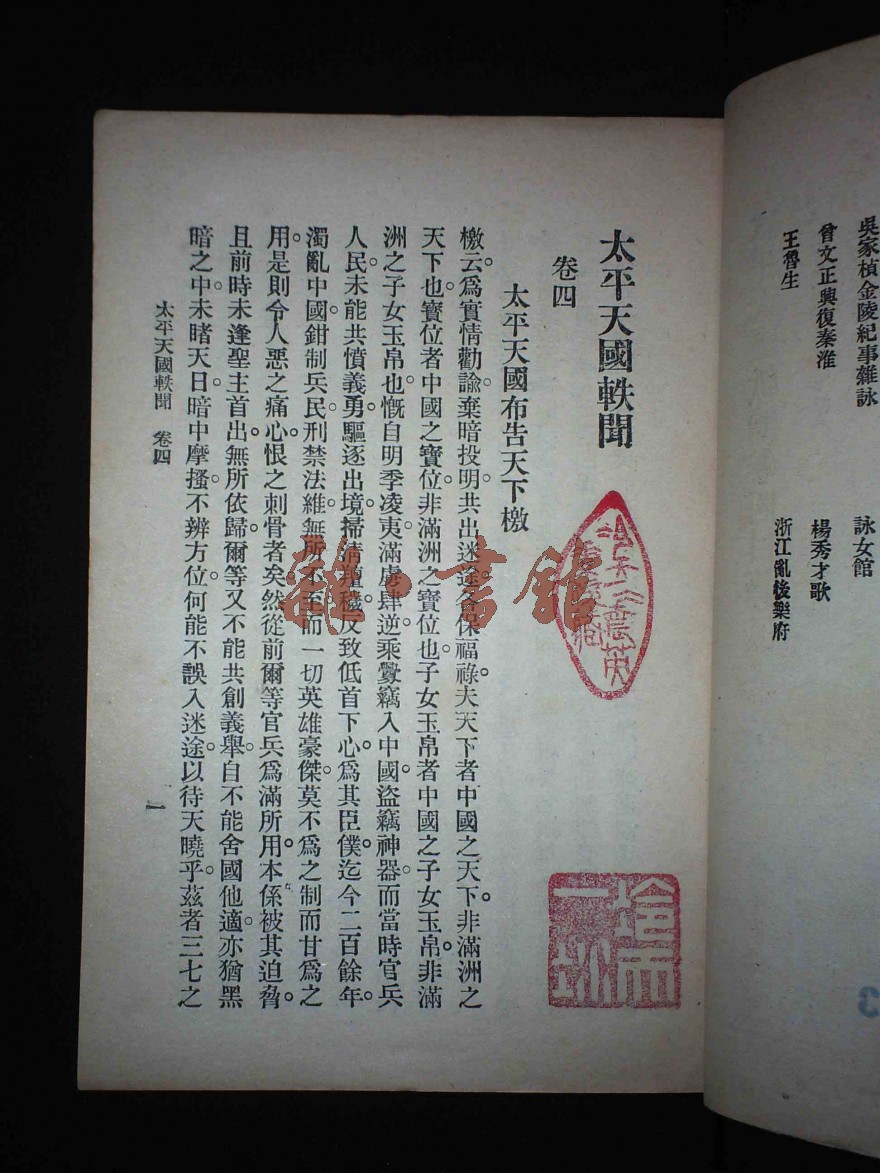 吳家楨金陵紀事雜詠
詠女館
曾文正興復秦淮
楊秀才歌
王魯生
浙江亂後樂府
太平天國軼聞
卷四
太平天國布告天下檄
檄云。爲實情勸諭。棄暗投明。共出迷途。各保福祿。夫天下者中國之天下。非滿洲之
天下也。寶位者中國之寶位。非滿洲之寶位也。子女玉帛者中國之子女玉帛。非滿
洲之子女玉帛也。慨自明季凌夷。滿虜肆逆。乘釁竊入中國。盜竊神器。而當時官兵
人民。未能共憤義勇。驅逐出境。掃清羶穢。反致低首下心。爲其臣僕。迄今二百餘年。
濁亂中國。鉗制兵民。刑禁法維。無所不至。而一切英雄豪傑。莫不爲之制而甘爲之
用。是則令人惡之痛心。恨之刺骨者矣。然從前爾等官兵爲滿所用。本係被其迫脅。
且前時未逢聖主首出。無所依歸。爾等又不能共創義舉。自不能舍國他適。亦猶黑
暗之中。未睹天日。暗中摩搔。不辨方位。何能不誤入迷途。以待天曉乎。茲者三七之
太平天國軼聞 卷四
一
龍書館